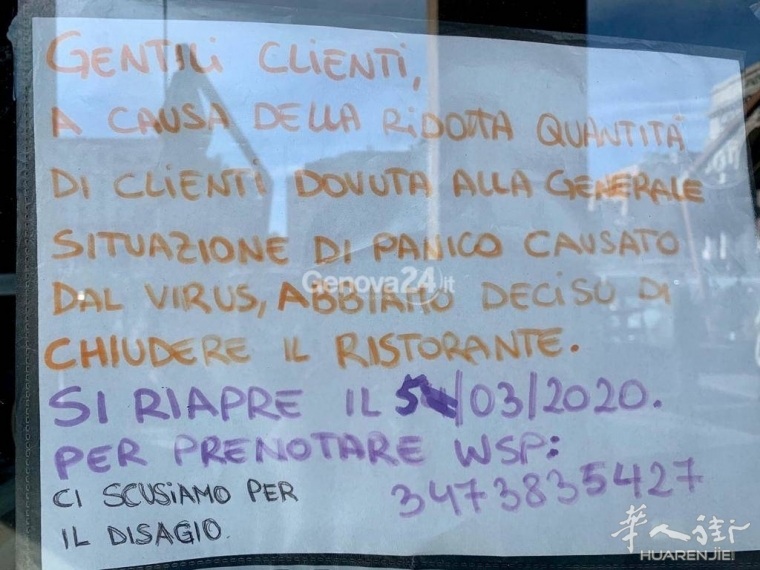 GENTILI CLIENTI,
A CAUSA DELLA RIDOTTA QUANTITÀ
DI CLIENTI DOVUTA ALLA GENERALE
SITUAZIONE DI PANICO CAUSATO
Genova24.it
DAL VIRUS, ABBIAMO DECISO DI
CHIUDERE IL RISTORANTE.
SI RIAPRE IL 5/03/2020.
PER PRENOTARE WSP:
3473835427
CI SCUSIAMO PER
IL DISAGIO.
华人街
HUARENJIE